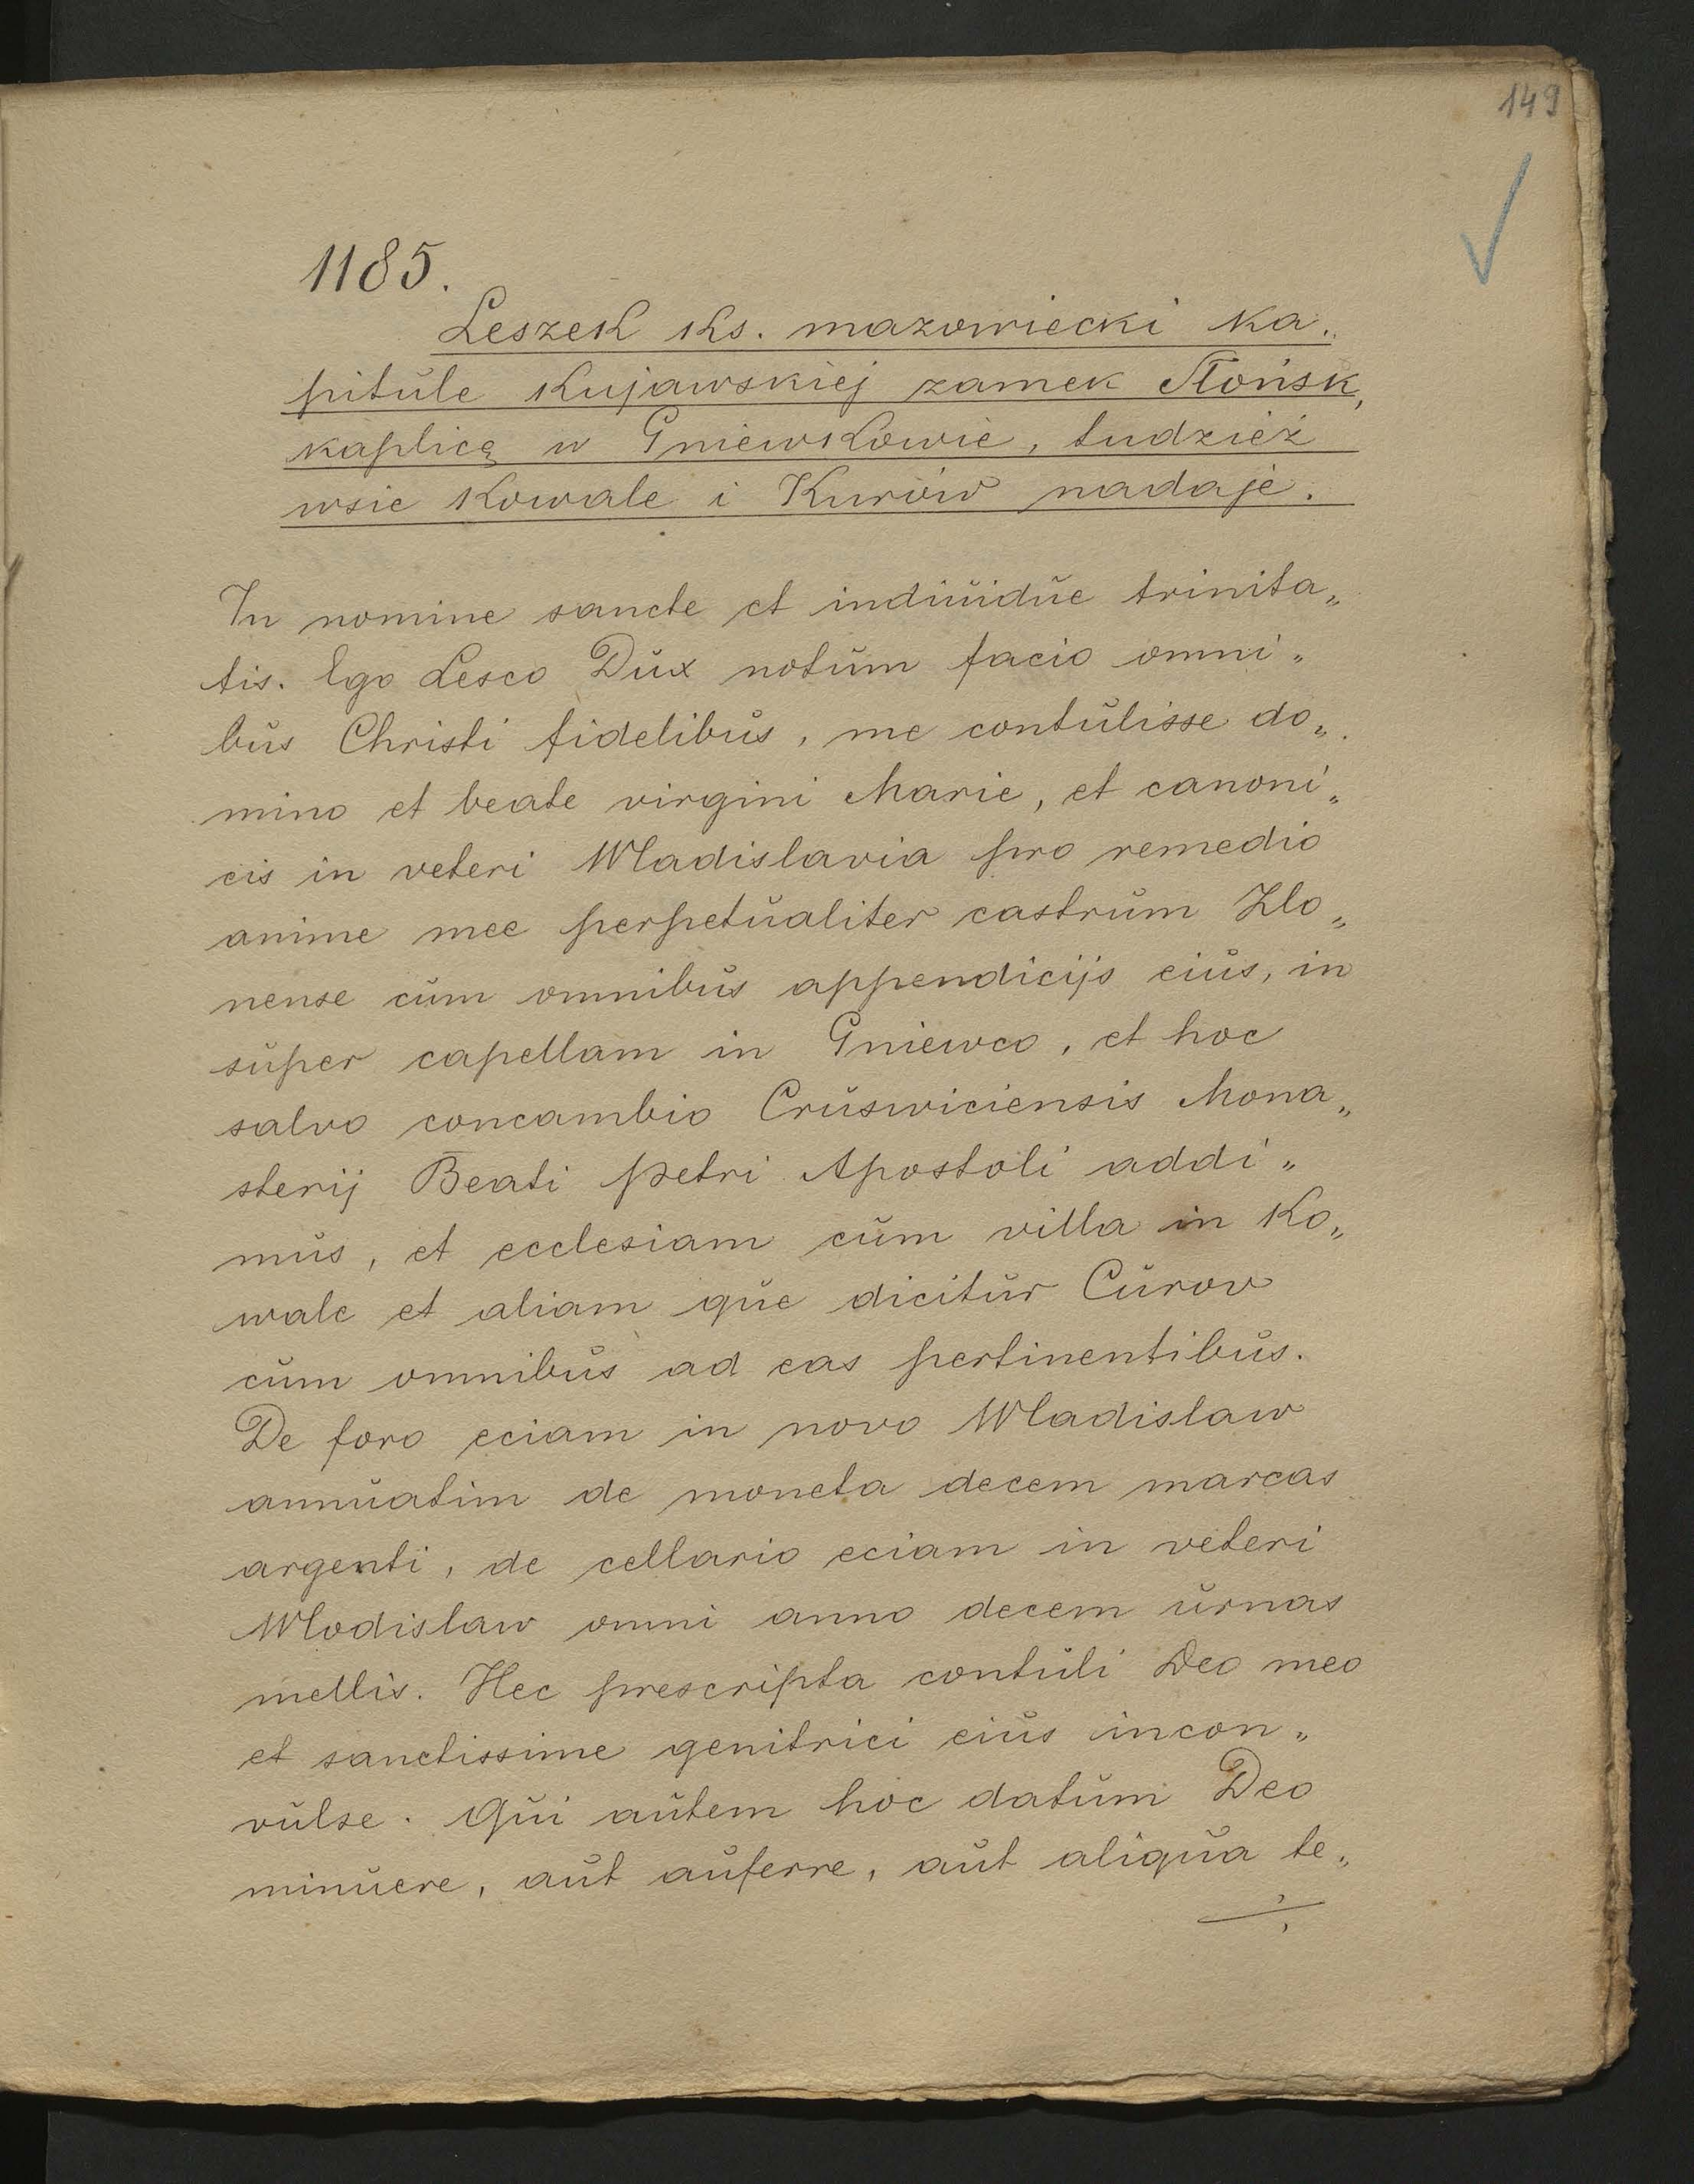 149
1185.
Leszek ks. mazowiecki ka„
pitule kujawskiej zamek Słońsk,
kaplicę w Gniewkowie, tudzież
wsie Kowale i Kurów nadaje.
In nomine sancte et indiuidue trinita„
tis. Ego Lesco Dux notum facio omni„
bus Christi fidelibus, me contulisse do„
mino et beate virgini Marie, et canoni„
cis in veteri Wladislavia pro remedio
anime mee perpetualiter castrum Zlo„
nense cum omnibus appendicijs eius, in
super capellam in Gniewco, et hoc
salvo concambio Crusviciensis Mona„
sterij Beati petri Apostoli addi„
mus, et ecclesiam cum villa in Ko„
wale et aliam que dicitur Curow
cum omnibus ad eas pertinentibus.
De foro eciam in novo Wladislaw
annuatim de moneta decem marcas
argenti, de cellario eciam in veteri
Wlodislaw omni anno decem urnas
mellis. Hec prescripta contuli Deo meo
et sanctissime genitrici eius incon„
vulse. Qui autem hoc datum Deo
minuere, aut auferre, aut aliqua te„